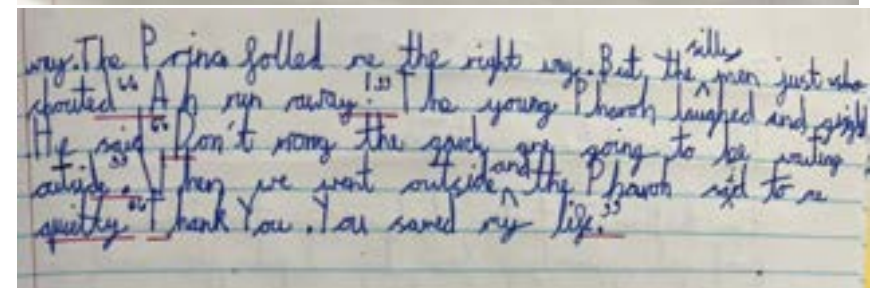 way. The Prince folled me the right way. But, the silly men just who
shouted “Ah run away!” The young Pharoh laughed and giggl
He said “Don't worry the gaurds are going to be waiting
outside.” When we went outside and the Pharoh said to me
quietly “Thank You. You saved my life.”